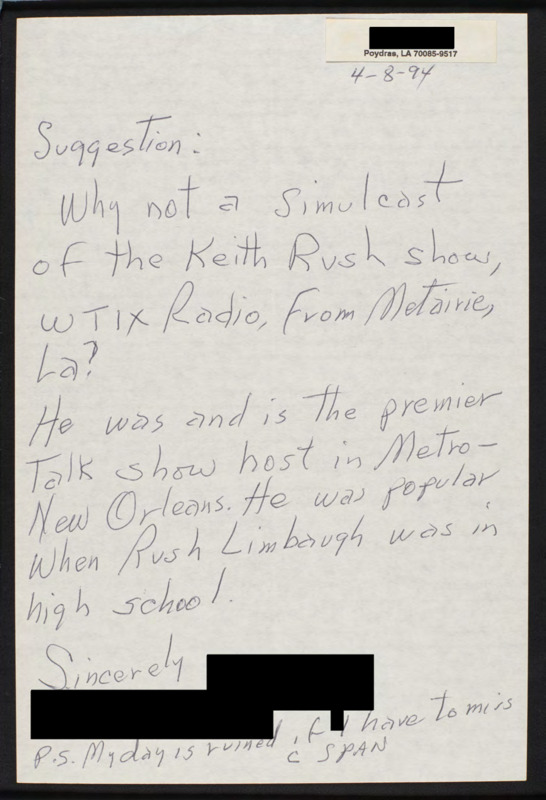 Poydras, LA 70085-9517
4-8-94
Suggestion:
Why not a simulcast
of the Keith Rush show,
WTIX Radio, From Metairie,
La?
He was and is the premier
Talk show host in Metro-
New Orleans. He was popular
When Rush Limbaugh was in
high school.
Sincerely
P.S. My day is ruined if I have to miss
C SPAN